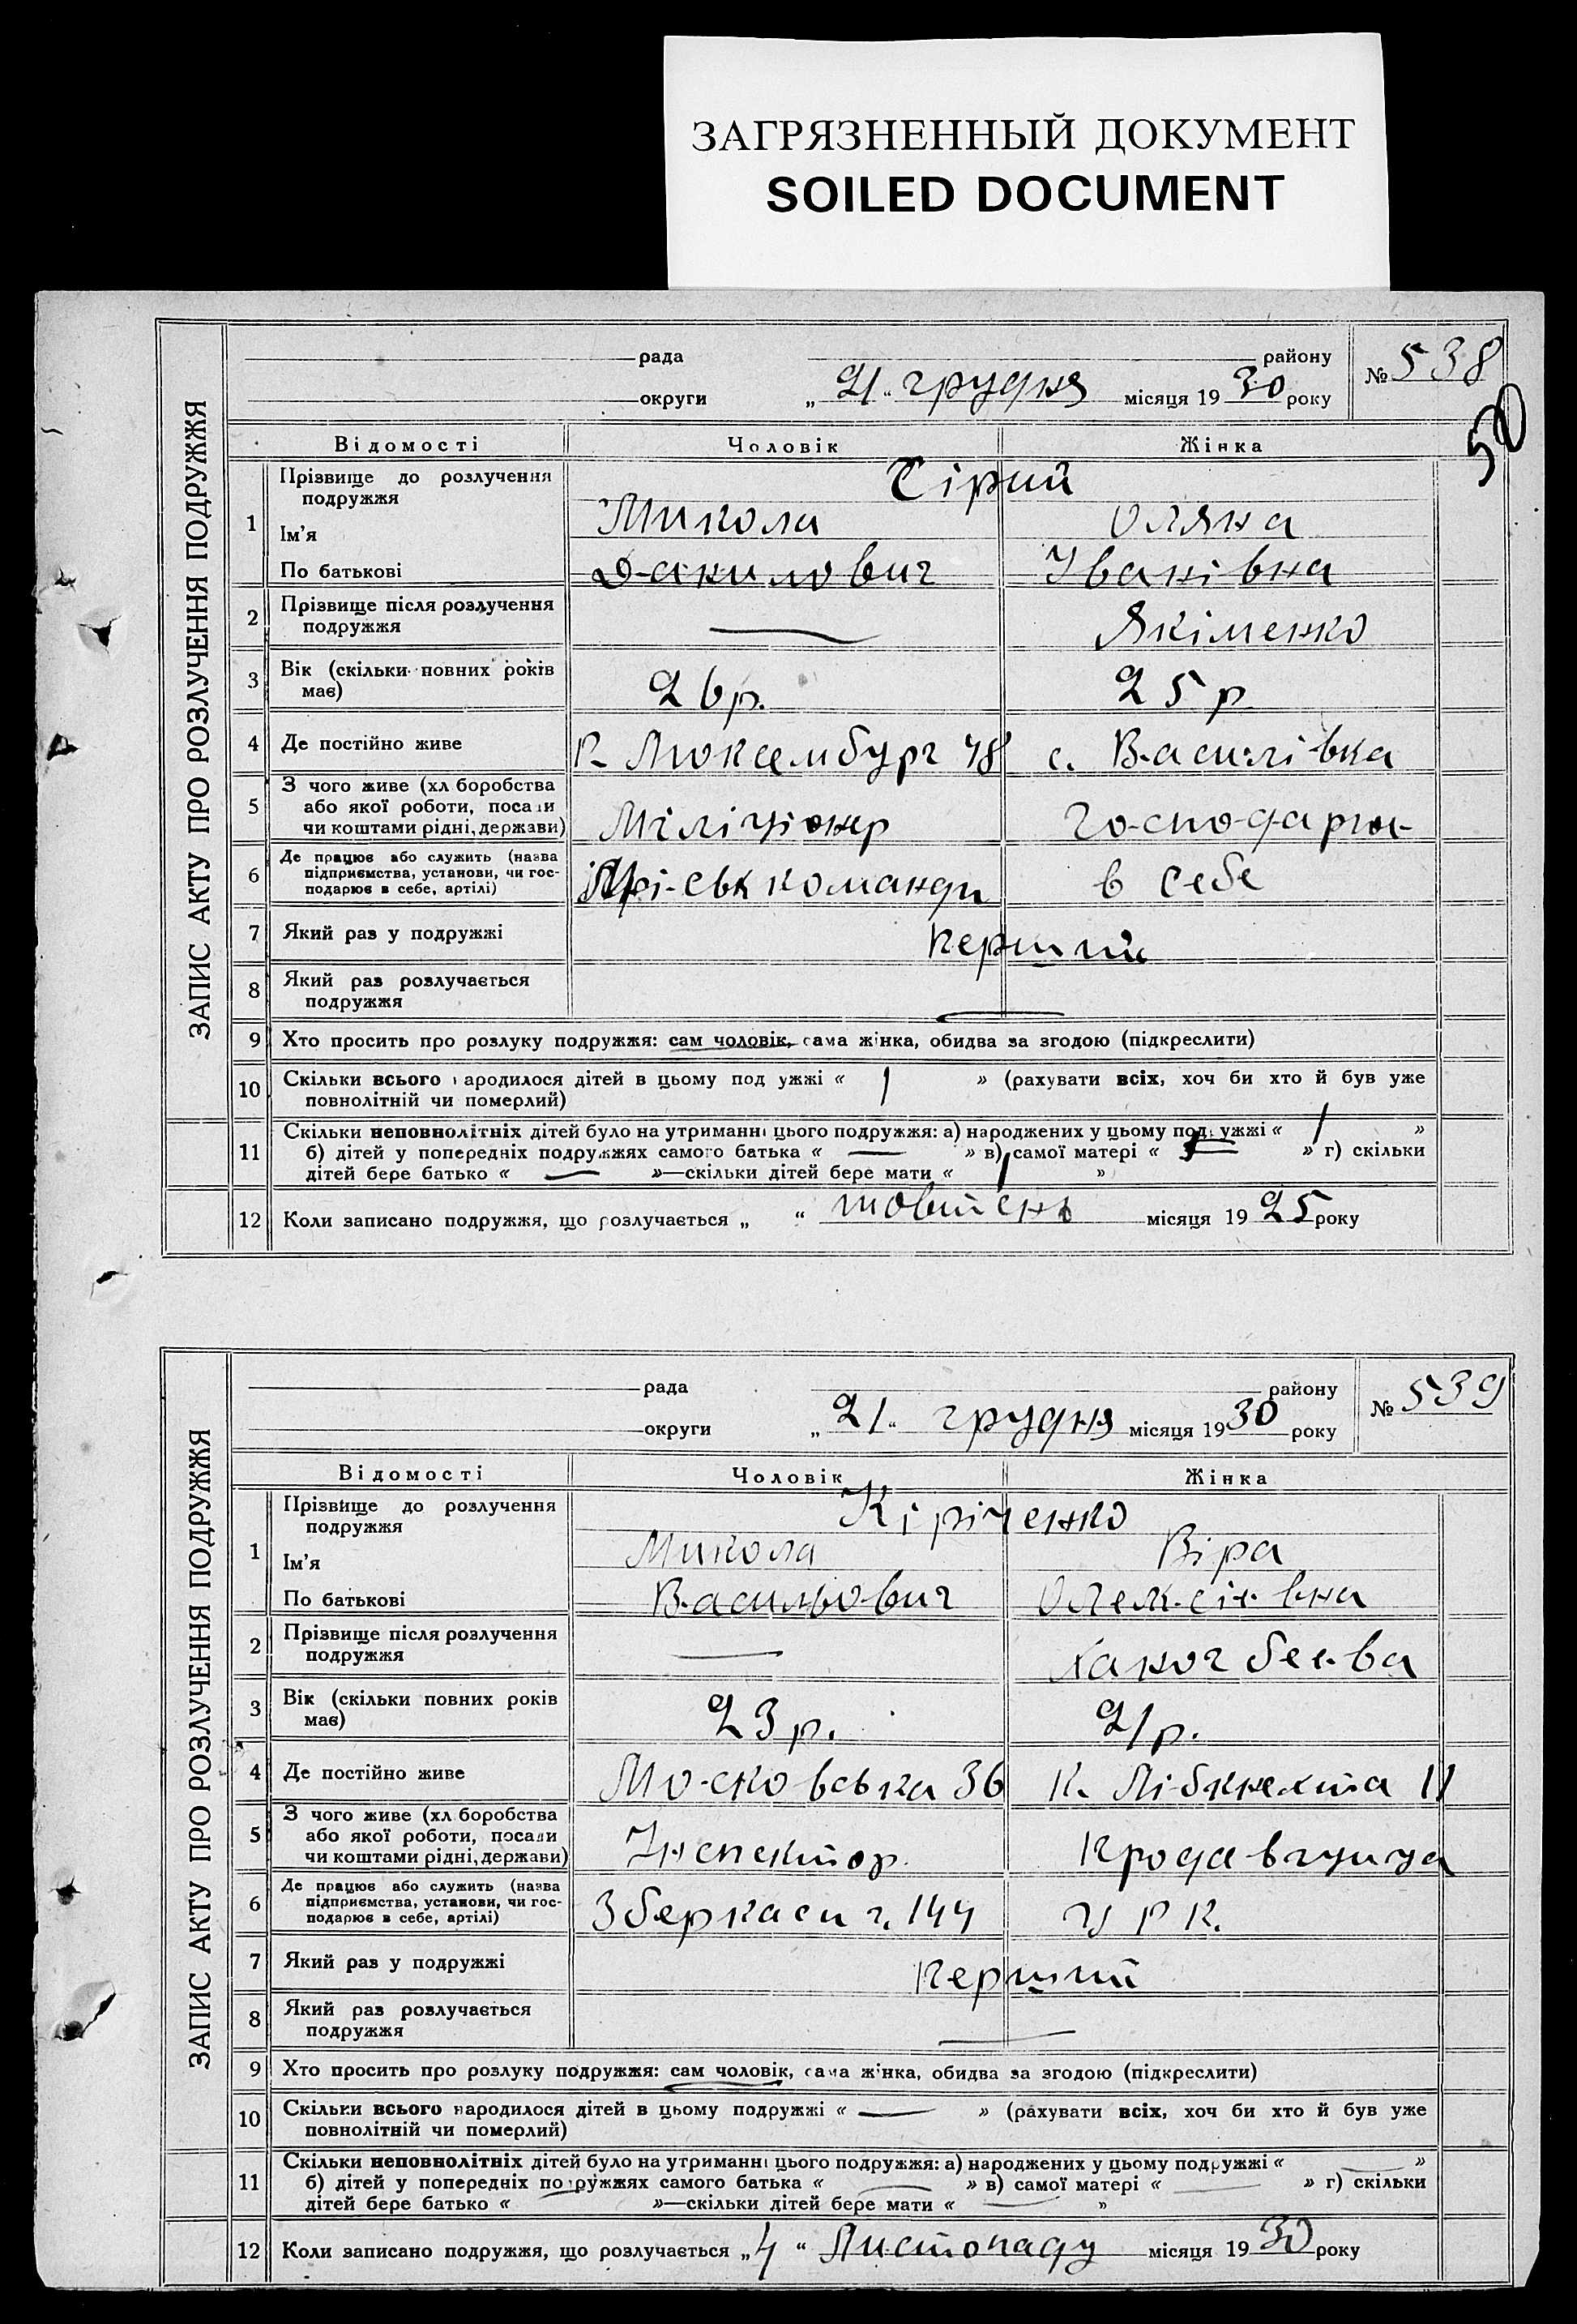 ЗАГРЯЗНЕННЫЙ ДОКУМЕНТ
SOILED DOCUMENT
ЗАПИС АКТУ ПРО РОЗЛУЧЕННЯ ПОДРУЖЖЯ
рада района
округи „ 21 “ грудня місяця 19 30 року
№ 538
50
Відомості Чоловік Жінка
1 Прізвище до розлучення подружжя Сірий
Ім'я Микола Оляна
По батькові Данилович Іванівна
2 Прізвище після розлучення подружжя — Якіменко
3 Вік (скільки повних років має) 26 р. 25 р
4 Де постійно живе Р. Люксембург 48 с. Василівка
5 З чого живе (хл боробства або якої роботи, посади чи коштами рідні, держави) Міліціонер Господарює
6 Де працює або служить (назва підприємства, установи, чи господарює в себе, артілі) команди в себе
7 Який раз у подружжі Перший
8 Який раз розлучається подружжя —
9 Хто просить про розлуку подружжя: сам чоловік, сама жінка, обидва за згодою (підкреслити)
10 Скільки всього народилося дітей в цьому подружжі « 1 » (рахувати всіх, хоч би хто й був уже
повнолітній чи померлий)
11 Скільки неповнолітніх дітей було на утриманні цього подружжя: а) народжених у цьому подружжі « 1 »
б) дітей у попередніх подружжях самого батька « — » в) самої матері « — » г) скільки
дітей бере батько « — »—скільки дітей бере мати « 1 »
12 Коли записано подружжя, що розлучається „ “ жовтень місяця 19 25 року
ЗАПИС АКТУ ПРО РОЗЛУЧЕННЯ ПОДРУЖЖЯ
рада району
округи „ 21 “ грудня місяця 19 30 року
№ 539
Відомості Чоловік Жінка
1 Прізвище до розлучення подружжя Кіріченко
Ім'я Микола Віра
По батькові Васильович Олексіївна
2 Прізвище після розлучення подружжя —
3 Вік (скільки повних років має) 23 р. 21 р.
4 Де постійно живе Московська 36 К. Лібкнехта 11
5 З чого живе (хл боробства або якої роботи, посади чи коштами рідні, держави) Інспектор Продавщиця
6 Де працює або служить (назва підприємства, установи, чи господарює в себе, артілі) Зберкаси 144 Ц Р К.
7 Який раз у подружжі Перший
8 Який раз розлучається подружжя —
9 Хто просить про розлуку подружжя: сам чоловік, сама жінка, обидва за згодою (підкреслити)
10 Скільки всього народилося дітей в цьому подружжі « — » (рахувати всіх, хоч би хто й був уже
повнолітній чи померлий)
11 Скільки неповнолітніх дітей було на утриманні цього подружжя: а) народжених у цьому подружжі « — »
б) дітей у попередніх подружжях самого батька « — » в) самої матері « — » г) скільки
дітей бере батько « »—скільки дітей бере мати « — »
12 Коли записано подружжя, що розлучається „ 4 “ Листопаду місяця 19 30 року